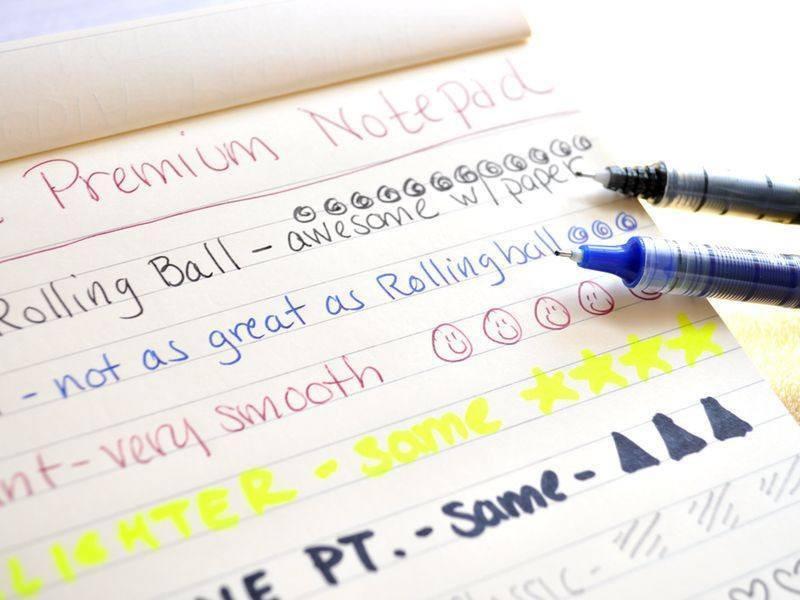 Premium Notepad
Rolling Ball - awesome w/ paper
- not as great as Rollingball
- very smooth
- same
PT. - same -